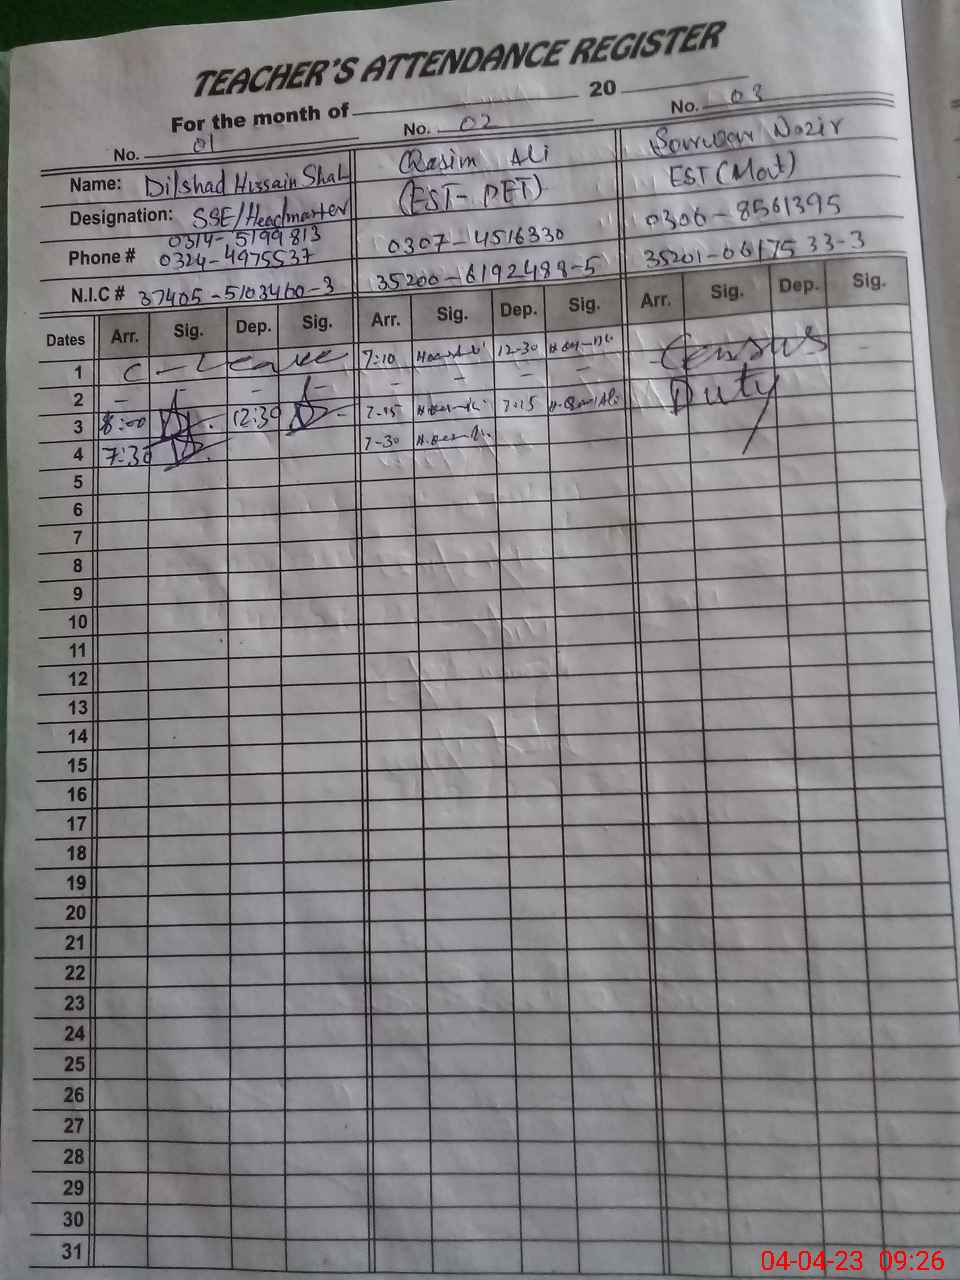 TEACHER'S ATTENDANCE REGISTER
For the month of 20
No. 01 No. 02 No. 03
Name: Dilshad Hussain Shah Qasim Ali Nazir
Designation: SSE/Headmaster (EST-PET) EST (Mat)
Phone # 0314-5199813 0324-4975537 0307-4516330 0306-8561395
N.I.C # 37405-5103460-3 35200-6192488-5 35201-0617533-3
Dates Arr. Sig. Dep. Sig. Arr. Sig. Dep. Sig. Arr. Sig. Dep. Sig.
1 C-Leave 7:10 12-30 Census
2 - - - - - - Duty
3 8:00 12:30 7-15 7:15
4 7:30 7-30
5
6
7
8
9
10
11
12
13
14
15
16
17
18
19
20
21
22
23
24
25
26
27
28
29
30
31
04-04-23 09:26